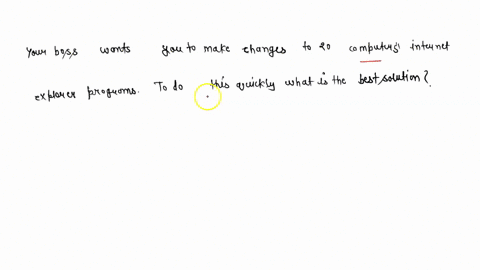 Your boss wants you to make changes to 20 computers' internet
explorer programs. To do this quickly what is the best solution?